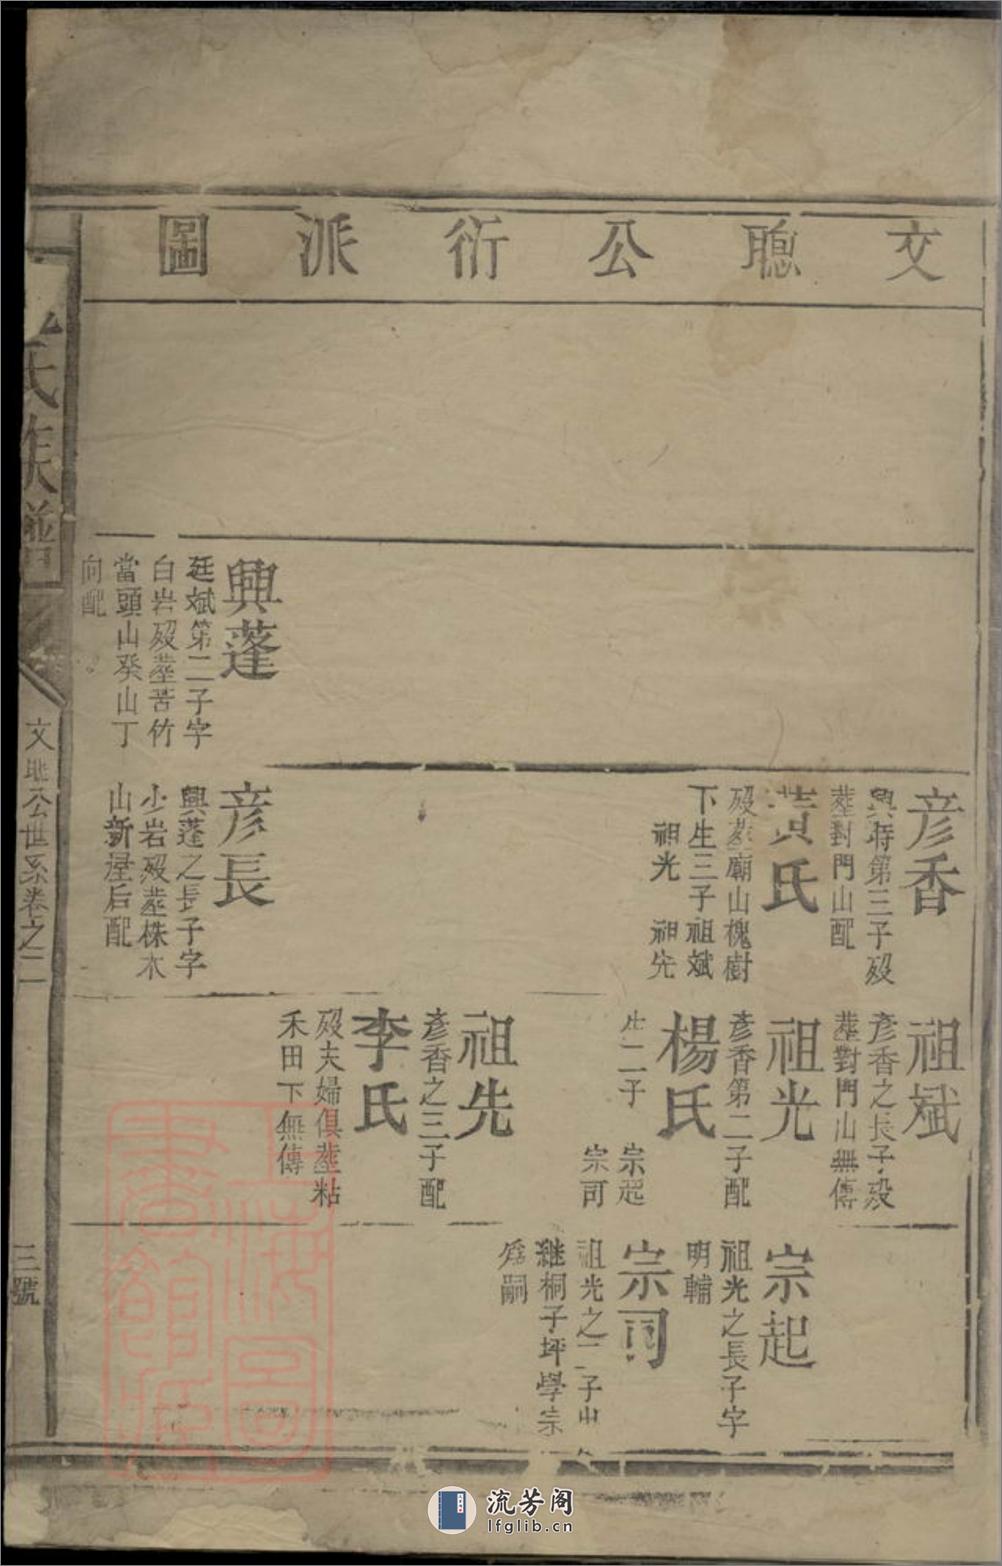 文聰公衍派圖
興蓬
廷斌第二子字
白岩歿塟苦竹
當頭山癸山丁
向配
彦香
興時第三子歿
塟對門山配
黃氏
歿塟廟山槐樹
下生三子祖斌
祖光 祖先
彦長
興蓬之長子字
少岩歿塟株木
山新屋后配
祖斌
彦香之長子歿
塟對門山無傳
祖光
彦香第二子配
楊氏
生二子 宗起
宗司
祖先
彦香之三子配
李氏
歿夫婦俱塟粘
禾田下無傳
宗起
祖光之長子字
明輔
宗司
祖光之二子出
継桐子坪學宗
為嗣
氏族譜
文聰公世系卷之二
三號
上海圖書館藏
流芳阁
lfglib.cn